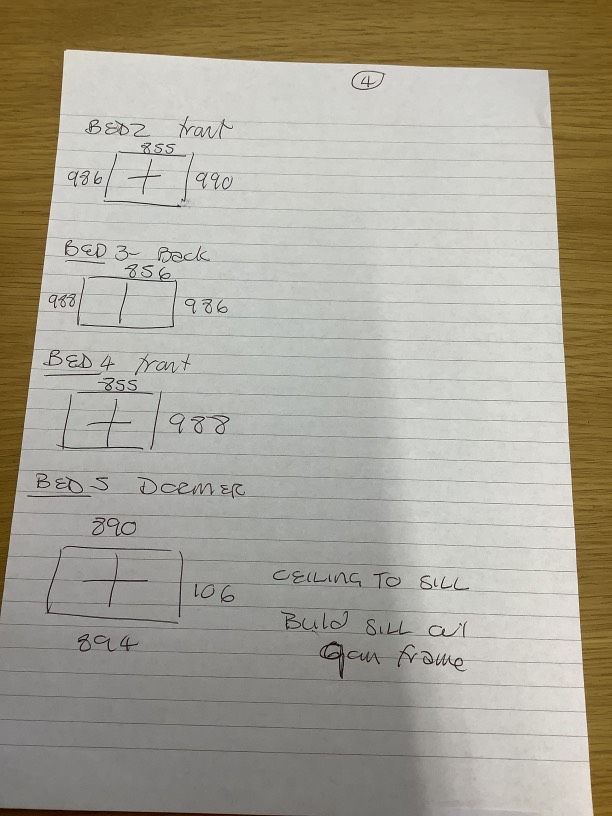 4
BED 2 front
855
986 990
BED 3- Back
856
988 986
BED 4 front
855
988
BED 5 DORMER
890
106 CEILING TO SILL
Build SILL out
frame
894